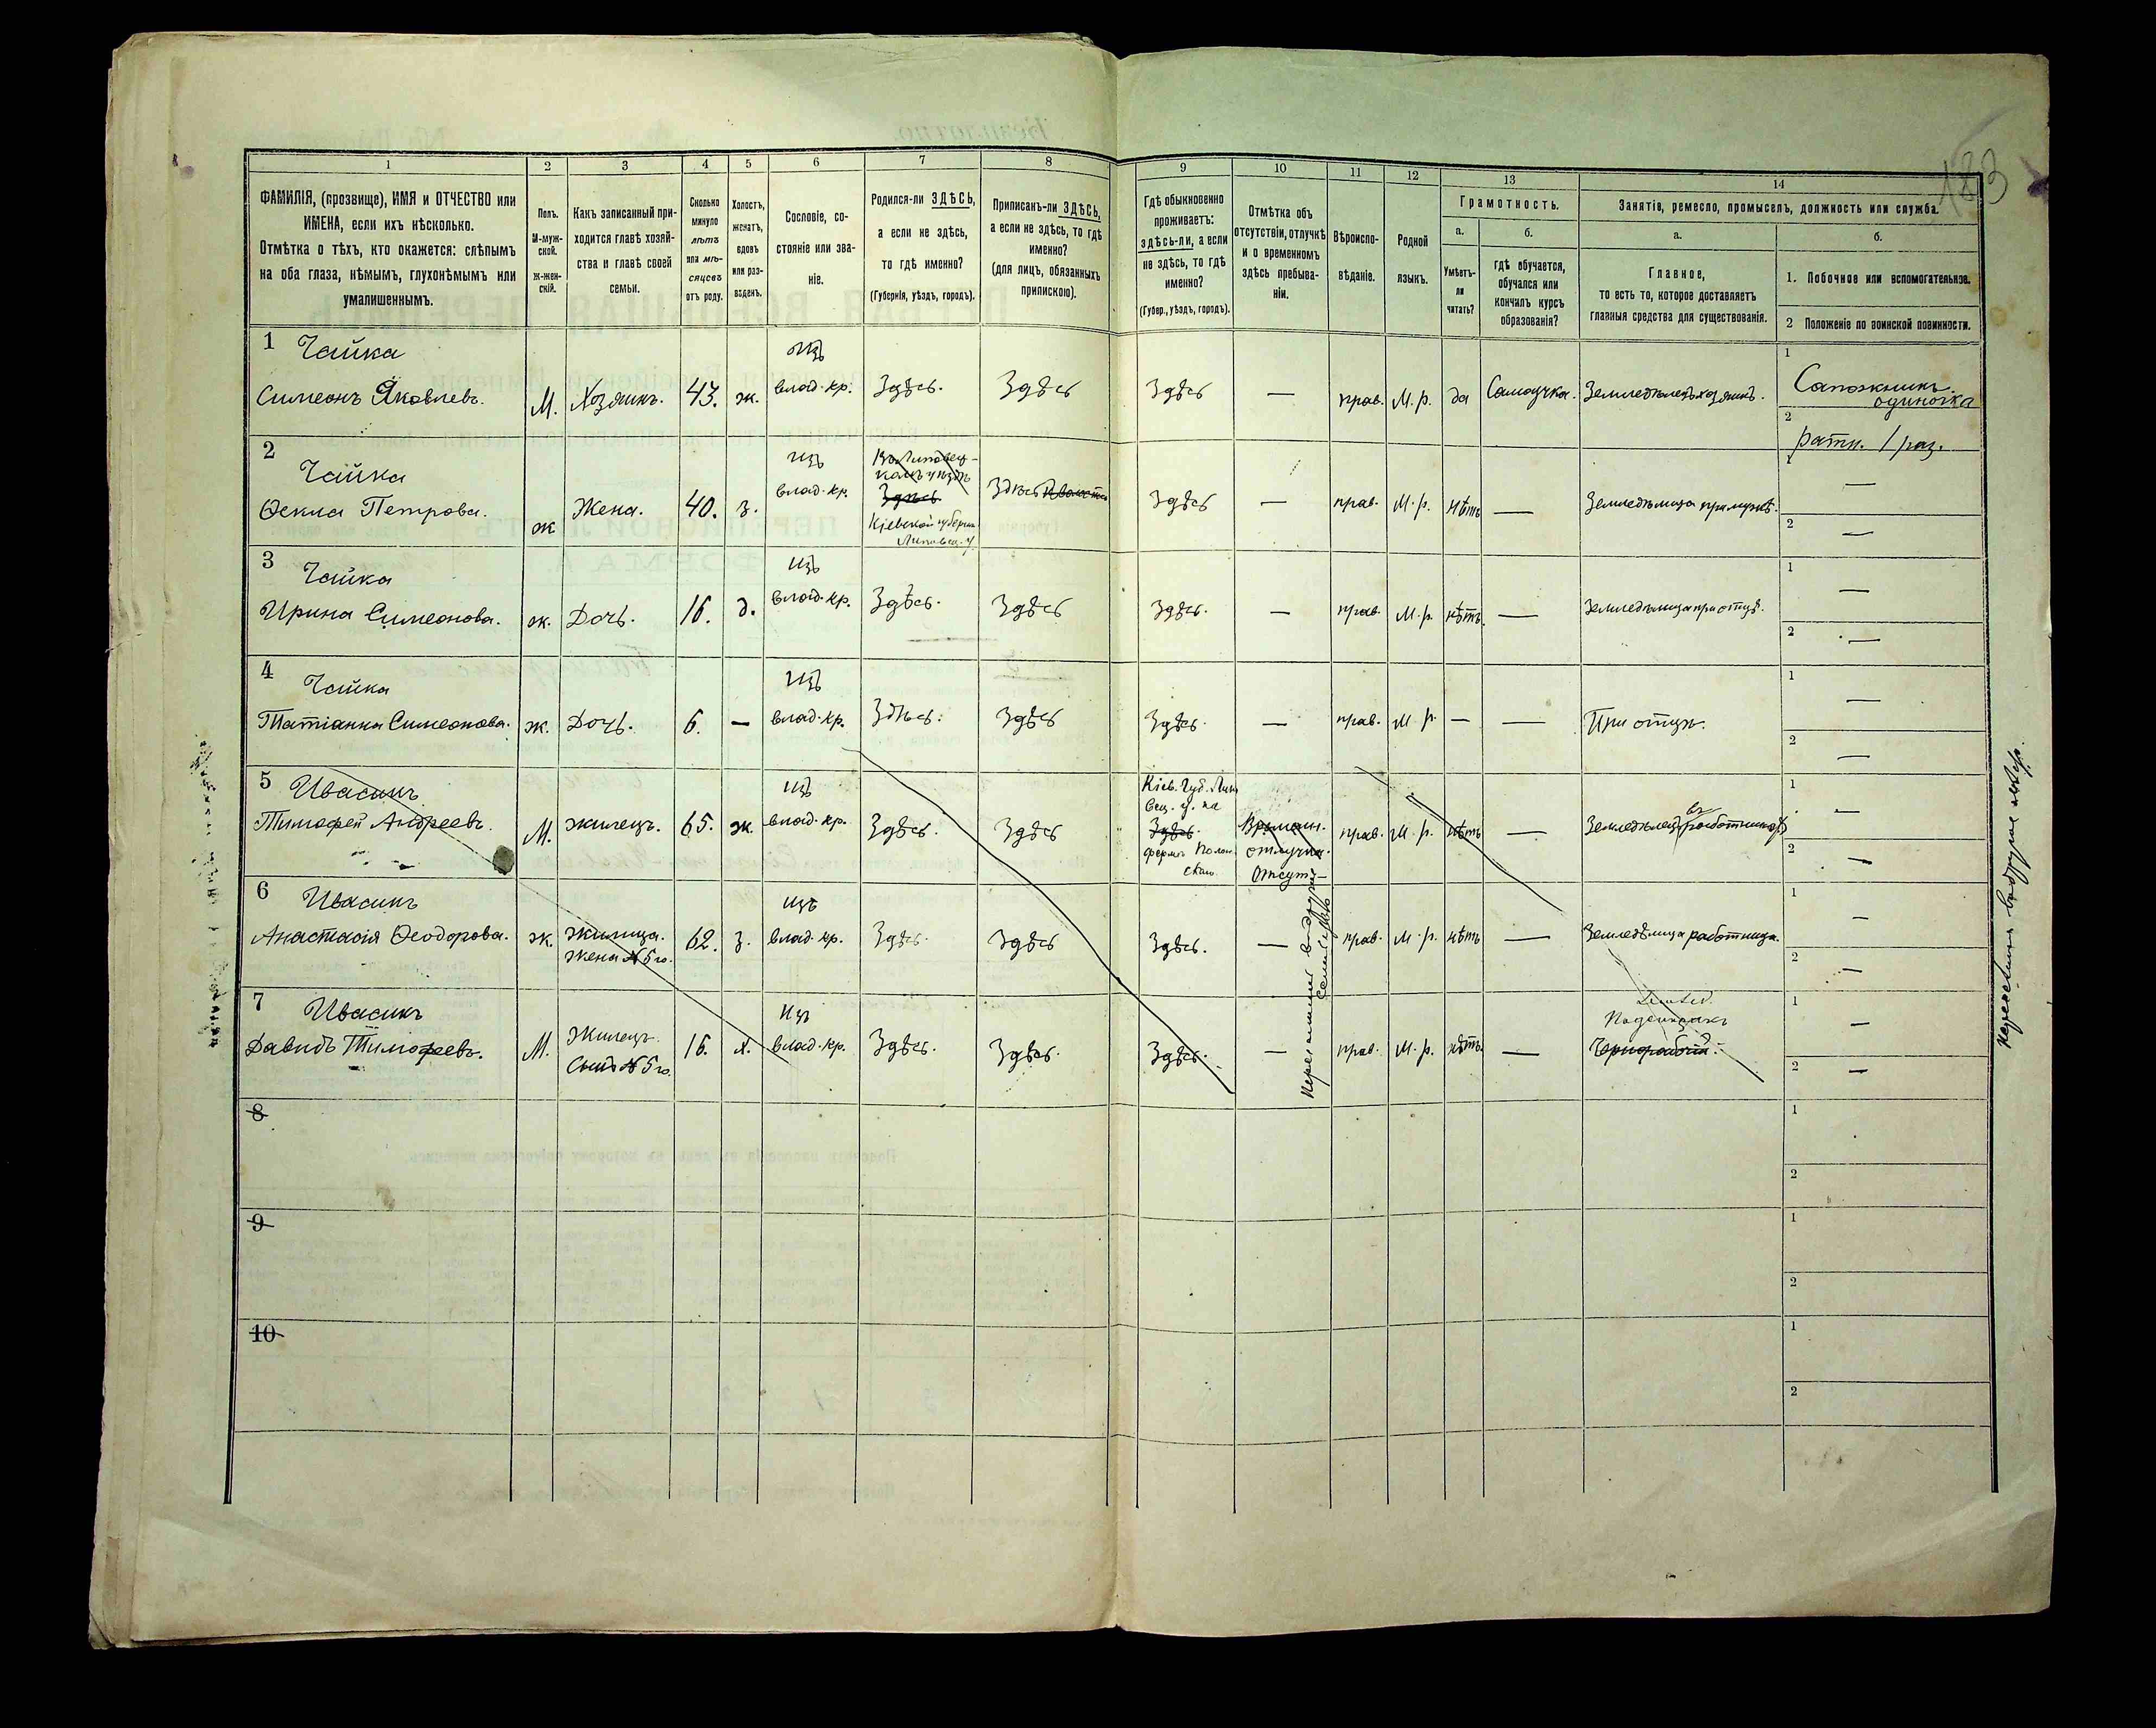 183
1 2 3 4 5 6 7 8 9 10 11 12 13 14
ФАМИЛІЯ, (прозвище), ИМЯ и ОТЧЕСТВО или
ИМЕНА, если ихъ нѣсколько.
Отмѣтка о тѣхъ, кто окажется: слѣпымъ
на оба глаза, нѣмымъ, глухонѣмымъ или
умалишеннымъ.
Полъ.
М-муж-
ской.
Ж-жен-
скій.
Какъ записанный при-
ходится главѣ хозяй-
ства и главѣ своей
семьи.
Сколько
минуло
лѣтъ
или мѣ-
сяцевъ
отъ роду.
Холостъ,
женатъ,
вдовъ
или раз-
веденъ.
Сословіе, со-
стояніе или зва-
ніе.
Родился-ли ЗДѢСЬ,
а если не здѣсь,
то гдѣ именно?
(Губернія, уѣздъ, городъ).
Приписанъ-ли ЗДѢСЬ,
а если не здѣсь, то гдѣ
именно?
(для лицъ, обязанныхъ
припискою).
Гдѣ обыкновенно
проживаетъ:
здѣсь-ли, а если
не здѣсь, то гдѣ
именно?
(Губер., уѣздъ, городъ).
Отмѣтка объ
отсутствіи, отлучкѣ
и о временномъ
здѣсь пребыва-
ніи.
Вѣроиспо-
вѣданіе.
Родной
языкъ.
Грамотность.
а.
Умѣетъ-
ли
читать?
б.
гдѣ обучается,
обучался или
кончилъ курсъ
образованія?
Занятіе, ремесло, промыселъ, должность или служба.
а.
Главное,
то есть то, которое доставляетъ
главныя средства для существованія.
б.
1. Побочное или вспомогательное.
2 Положеніе по воинской повинности.
1 Чайка
Симеонъ Яковлевъ. М. Хозяинъ. 43. ж. изъ влад. кр. Здѣсь. Здѣсь Здѣсь — прав. М. р. да Самоучка. Земледѣлецъ хозяинъ.
1 Сапожникъ
одиночка
2 ратн. 1 раз.
2 Чайка
Ѳекла Петрова. ж Жена. 40. з. изъ влад. кр.
Въ Липовец-
комъ уѣздѣ
Здѣсь
Кіевской губерніи
Липовец. у.
Здѣсь Здѣсь — прав. М. р. нѣтъ — Земледѣлица при мужѣ.
1 —
2 —
3 Чайка
Ирина Симеонова. ж. Дочь. 16. д. изъ влад. кр. Здѣсь. Здѣсь Здѣсь. — прав. М. р. нѣтъ. — Земледѣлица при отцѣ.
1 —
2 —
4 Чайка
Татіанна Симеонова. ж. Дочь. 6. — изъ влад. кр. Здѣсь. Здѣсь Здѣсь. — прав. М. р. — — При отцѣ.
1 —
2 —
5 Ивасикъ
Тимофей Андреевъ. М. жилецъ. 65. ж. изъ влад. кр. Здѣсь. Здѣсь
Кіев. Губ. Лип
вец. у. на
Здѣсь.
Времен.
отлучка.
Отсут—
прав. М. р. нѣтъ — Земледѣлецъ работникъ
1 —
2 —
6 Ивасикъ
Анастасія Ѳеодорова. ж. жилица.
жена № 5го. 62. з. изъ влад. кр. Здѣсь. Здѣсь Здѣсь. — прав. М. р. нѣтъ — Земледѣлица работница.
1 —
2 —
7 Ивасикъ
Давидъ Тимофеевъ. М. Жилецъ.
Сынъ № 5го. 16. х. изъ влад. кр. Здѣсь. Здѣсь. Здѣсь. — прав. М. р. нѣтъ. —
Поденщикъ
Чернорабочій.
1 —
2 —
8
1
2
9
1
2
10
1
2